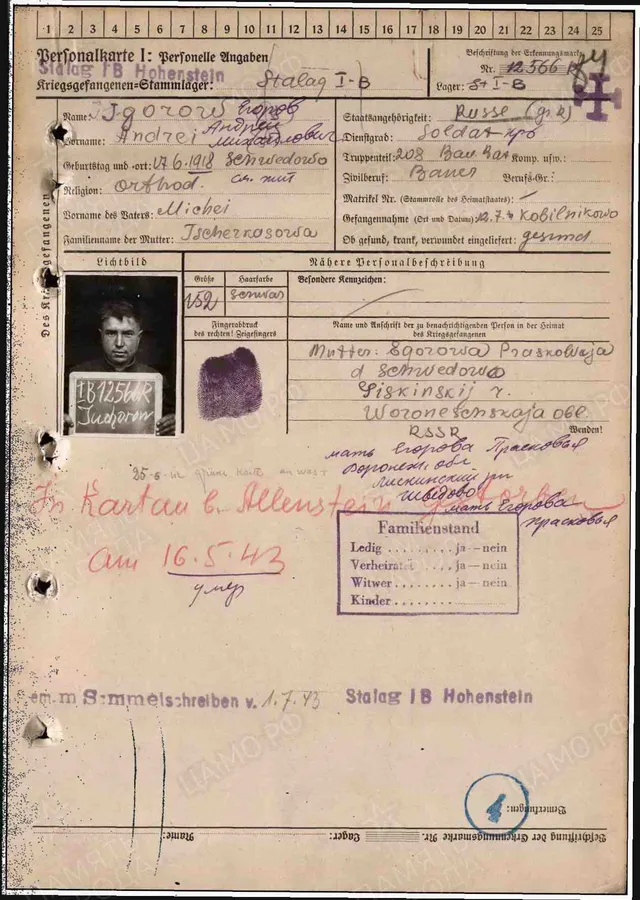 1 2 3 4 5 6 7 8 9 10 11 12 13 14 15 16 17 18 19 20 21 22 23 24 25
Personalkarte I: Personelle Angaben
Stalag IB Hohenstein
Kriegsgefangenen-Stammlager: Stalag I-B
Beschriftung der Erkennungsmarke
Nr. 12566
Lager: St I-B
Des Kriegsgefangenen
Name: Jgorow Егоров
Vorname: Andrei Андрей Михайлович
Geburtstag und -ort: 17.6.1918 Schwedowo
Religion: Orthod.
Vorname des Vaters: Michei
Familienname der Mutter: Tscherkasowa
Staatsangehörigkeit: Russe
Dienstgrad: Soldat
Truppenteil: 208 Bau Bat Komp. usw.:
Zivilberuf: Bauer Berufs-Gr.:
Matrikel Nr. (Stammrolle des Heimatstaates):
Gefangennahme (Ort und Datum): 12.7. Kobilnikowo
Ob gesund, krank, verwundet eingeliefert: gesund
Lichtbild
Nähere Personalbeschreibung
Größe Haarfarbe Besondere Kennzeichen:
152 schwar
Fingerabdruck
des rechten! Zeigefingers
Name und Anschrift der zu benachrichtigenden Person in der Heimat
des Kriegsgefangenen
Mutter: Egorowa Praskowaja
d Schwedowo
Liskinskij r.
Woroneschskaja obl.
RSSR
Wenden!
IB12566R
мать Егорова Прасковья
Воронеж. обл
Лискинский рн
Шведово
мать Егорова
Прасковья
In Kortau b. Allenstein gestorben
am 16.5.43
умер
Familienstand
Ledig ........ ja — nein
Verheiratet ja — nein
Witwer ....... ja — nein
Kinder ..............
m Sammelschreiben v. 1.7.43 Stalag IB Hohenstein
Bemerkungen:
Beschriftung der Erkennungsmarke Nr. Lager: Name:
ЦАМО РФ